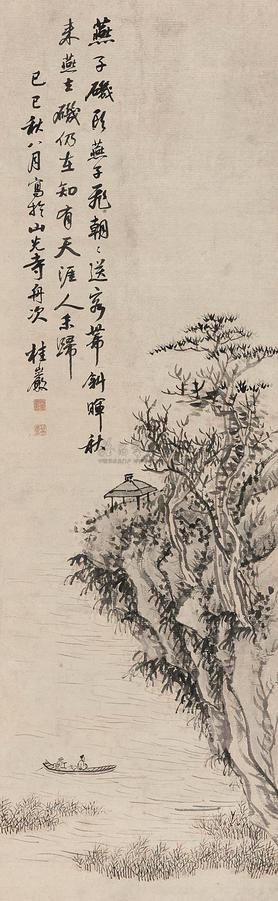 燕子磯頭燕子飛朝朝送客帶斜暉秋
來燕去磯仍在知有天涯人未歸
己巳秋八月寫於山光寺舟次
桂巖